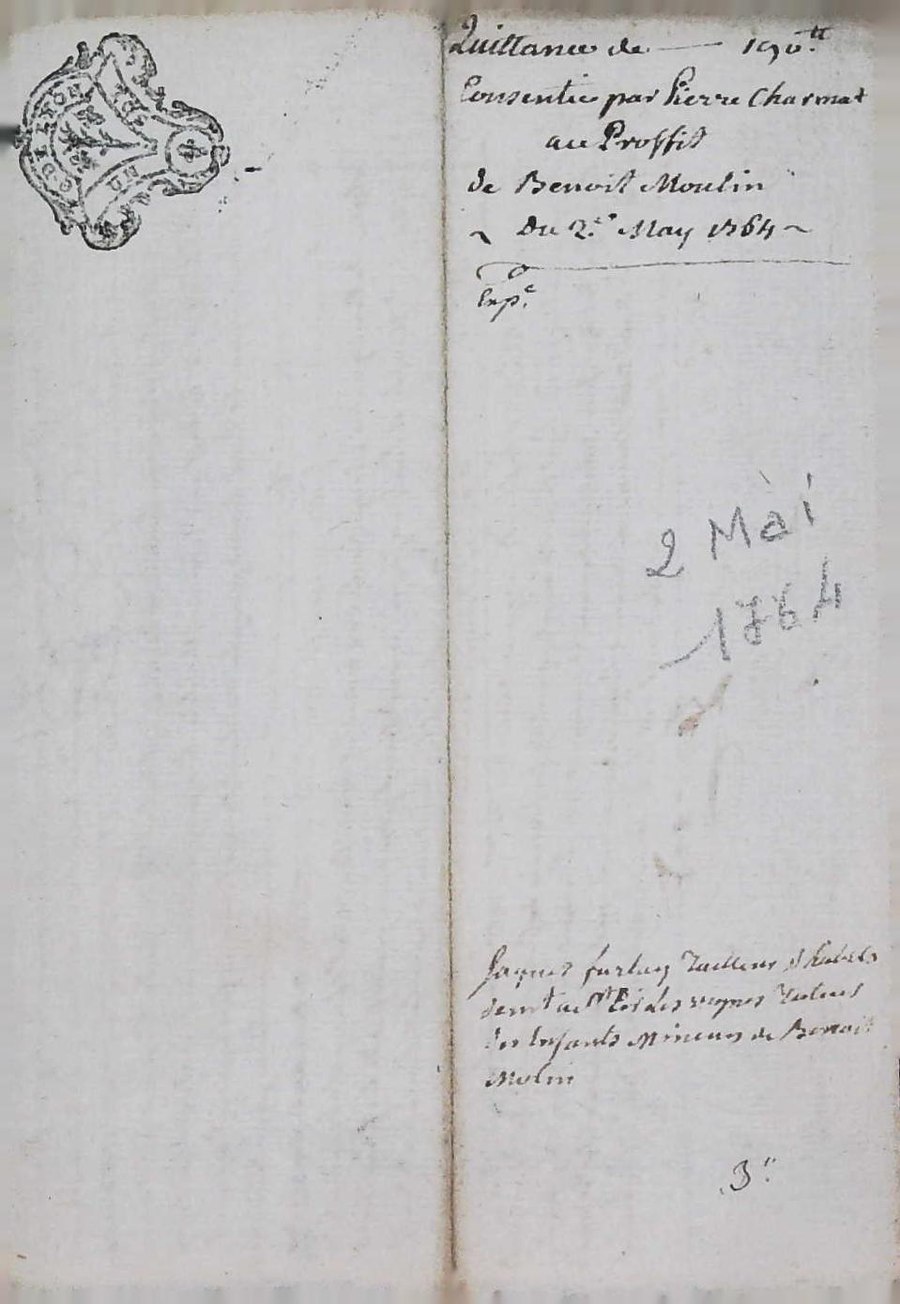 Quittance de — 190 tt
Consentie par Pierre Charmat
au Proffit
de Benoit Moulin
~ Du 2.e May 1764 ~
Exp.e
2 Mai
1764
Jaques furlay Tailleur d'habits
demt a St les vignes Tuteur
des Enfants Mineurs de Benoit
Molin
3"
GDE LYON
UN